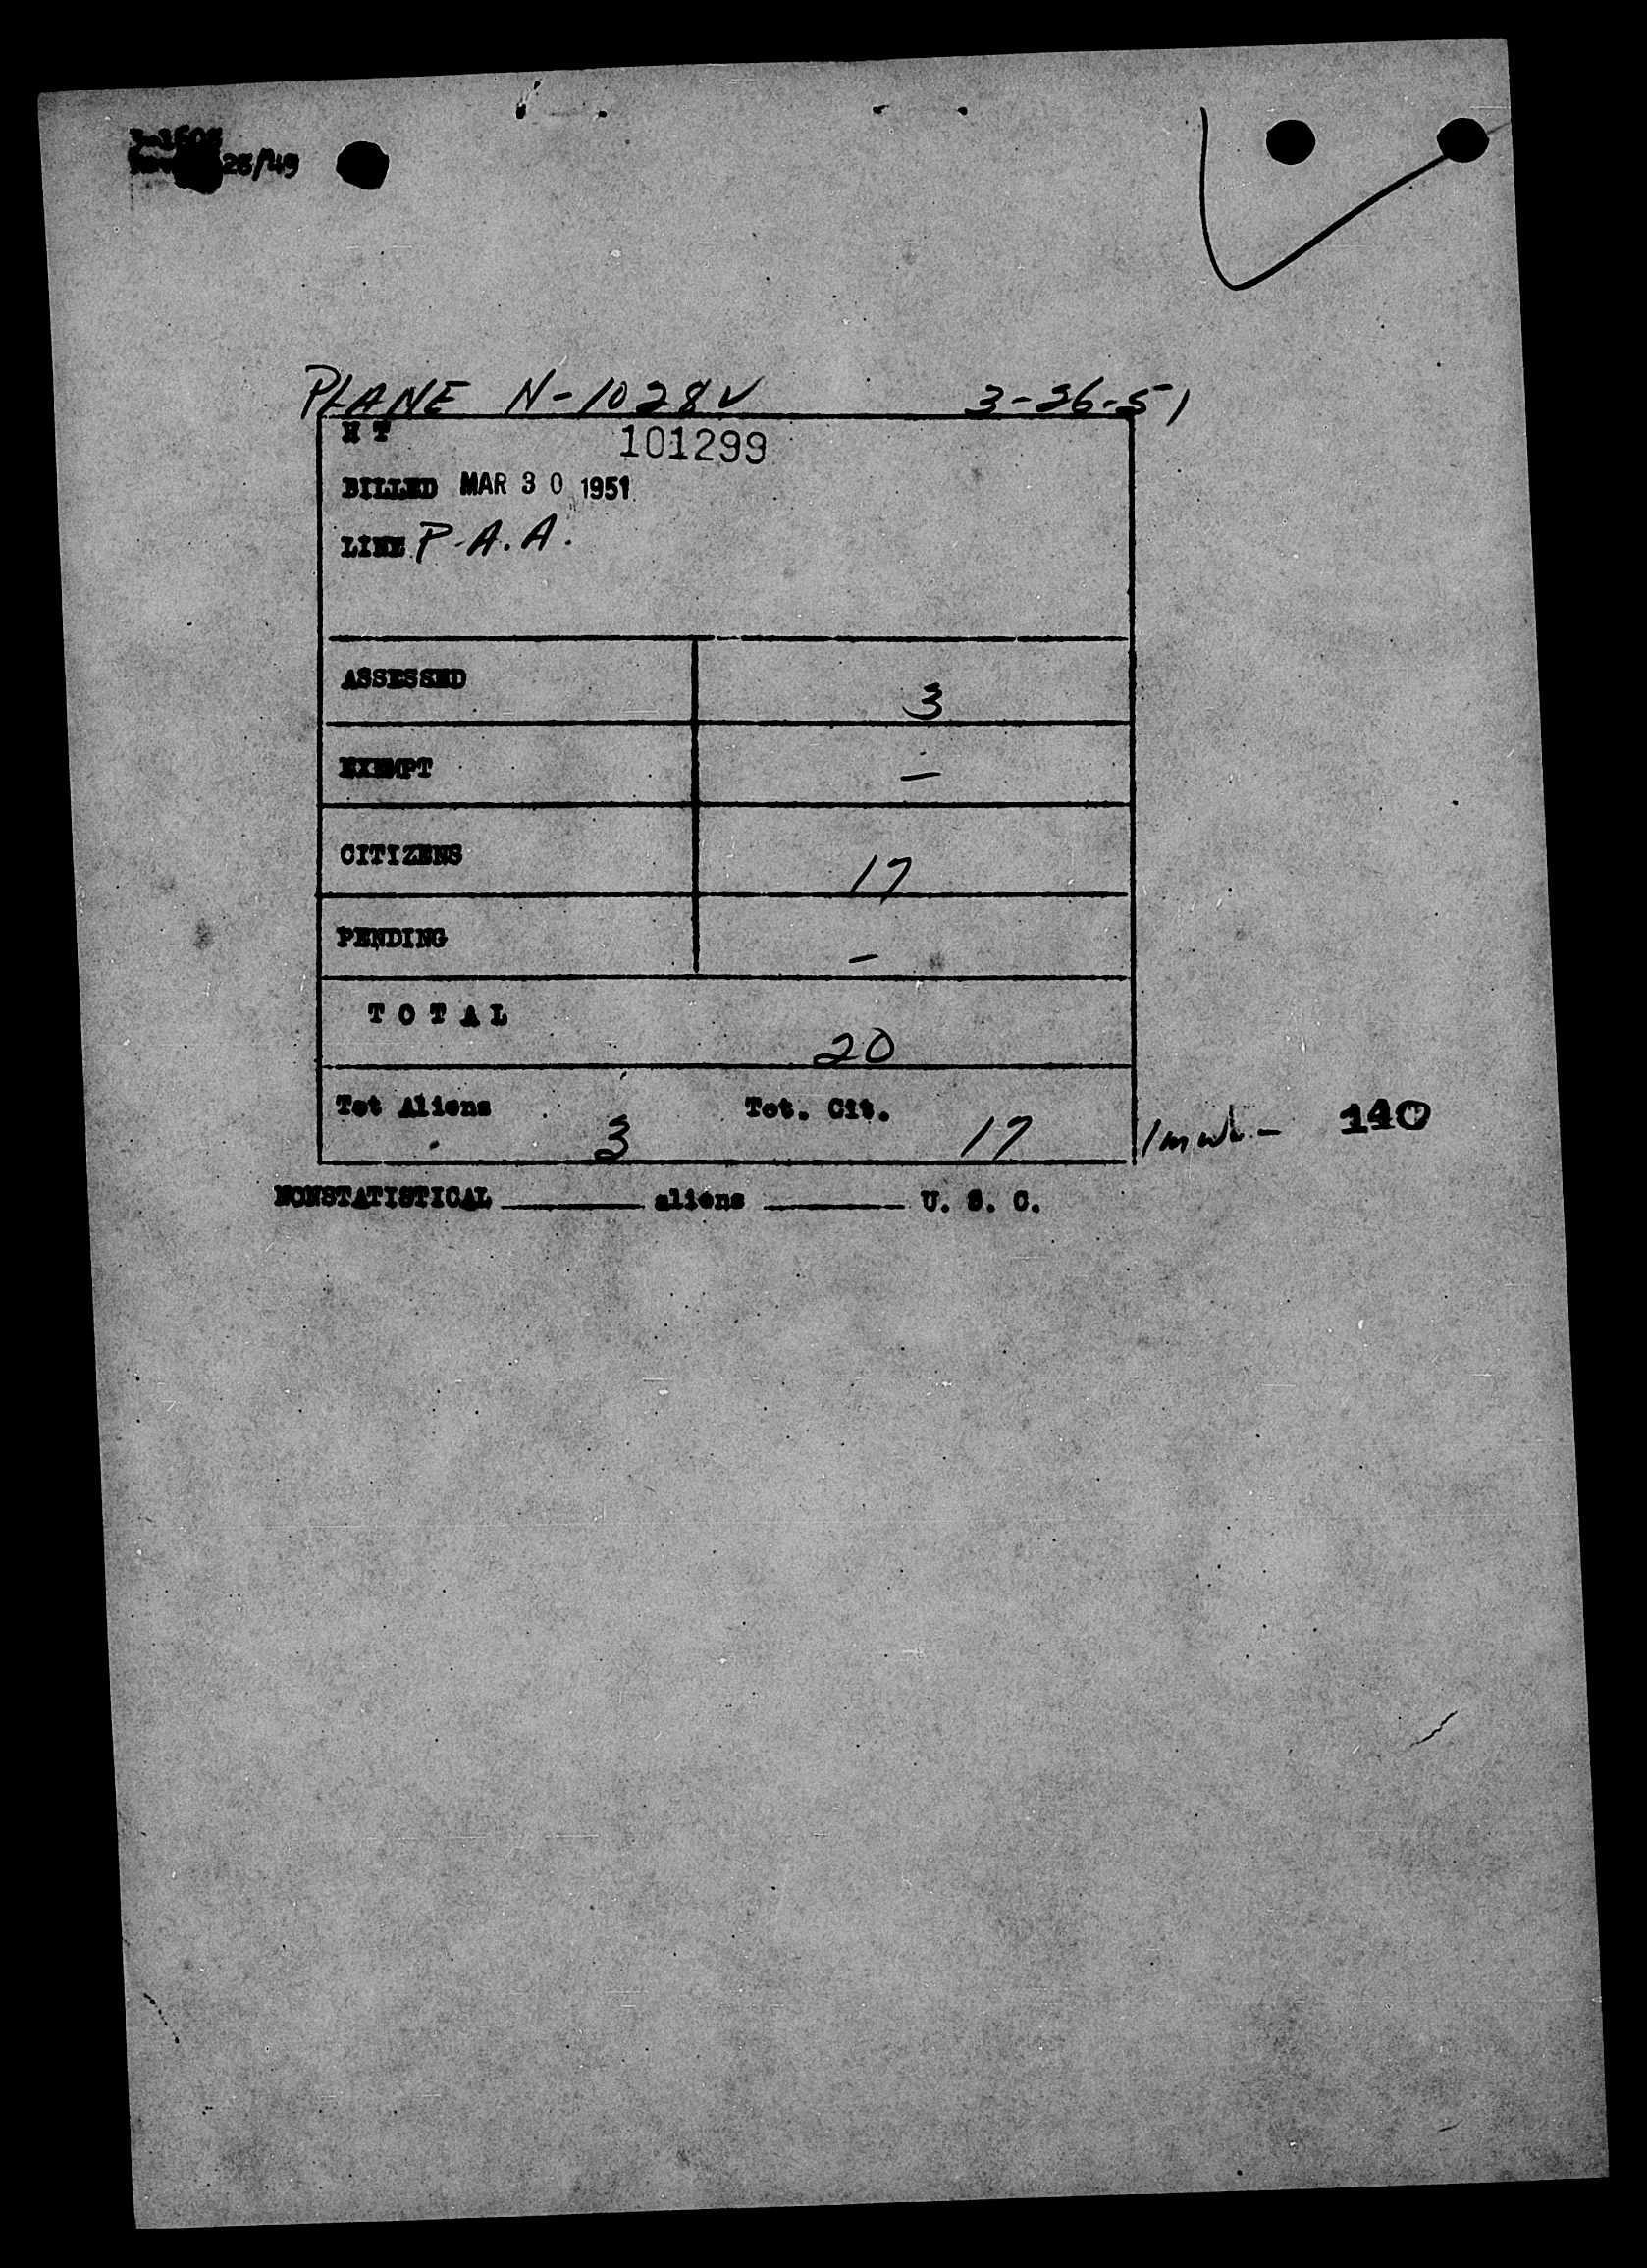 3-1605
25/49
PLANE N-1028V 3-26-51
H T 101299
BILLED MAR 30 1951
LINE P.A.A.
ASSESSED 3
EXEMPT —
CITIZENS 17
PENDING —
T O T A L 20
Tot Aliens 3 Tot. Cit. 17 140
NONSTATISTICAL ________ aliens ________ U. S. C.